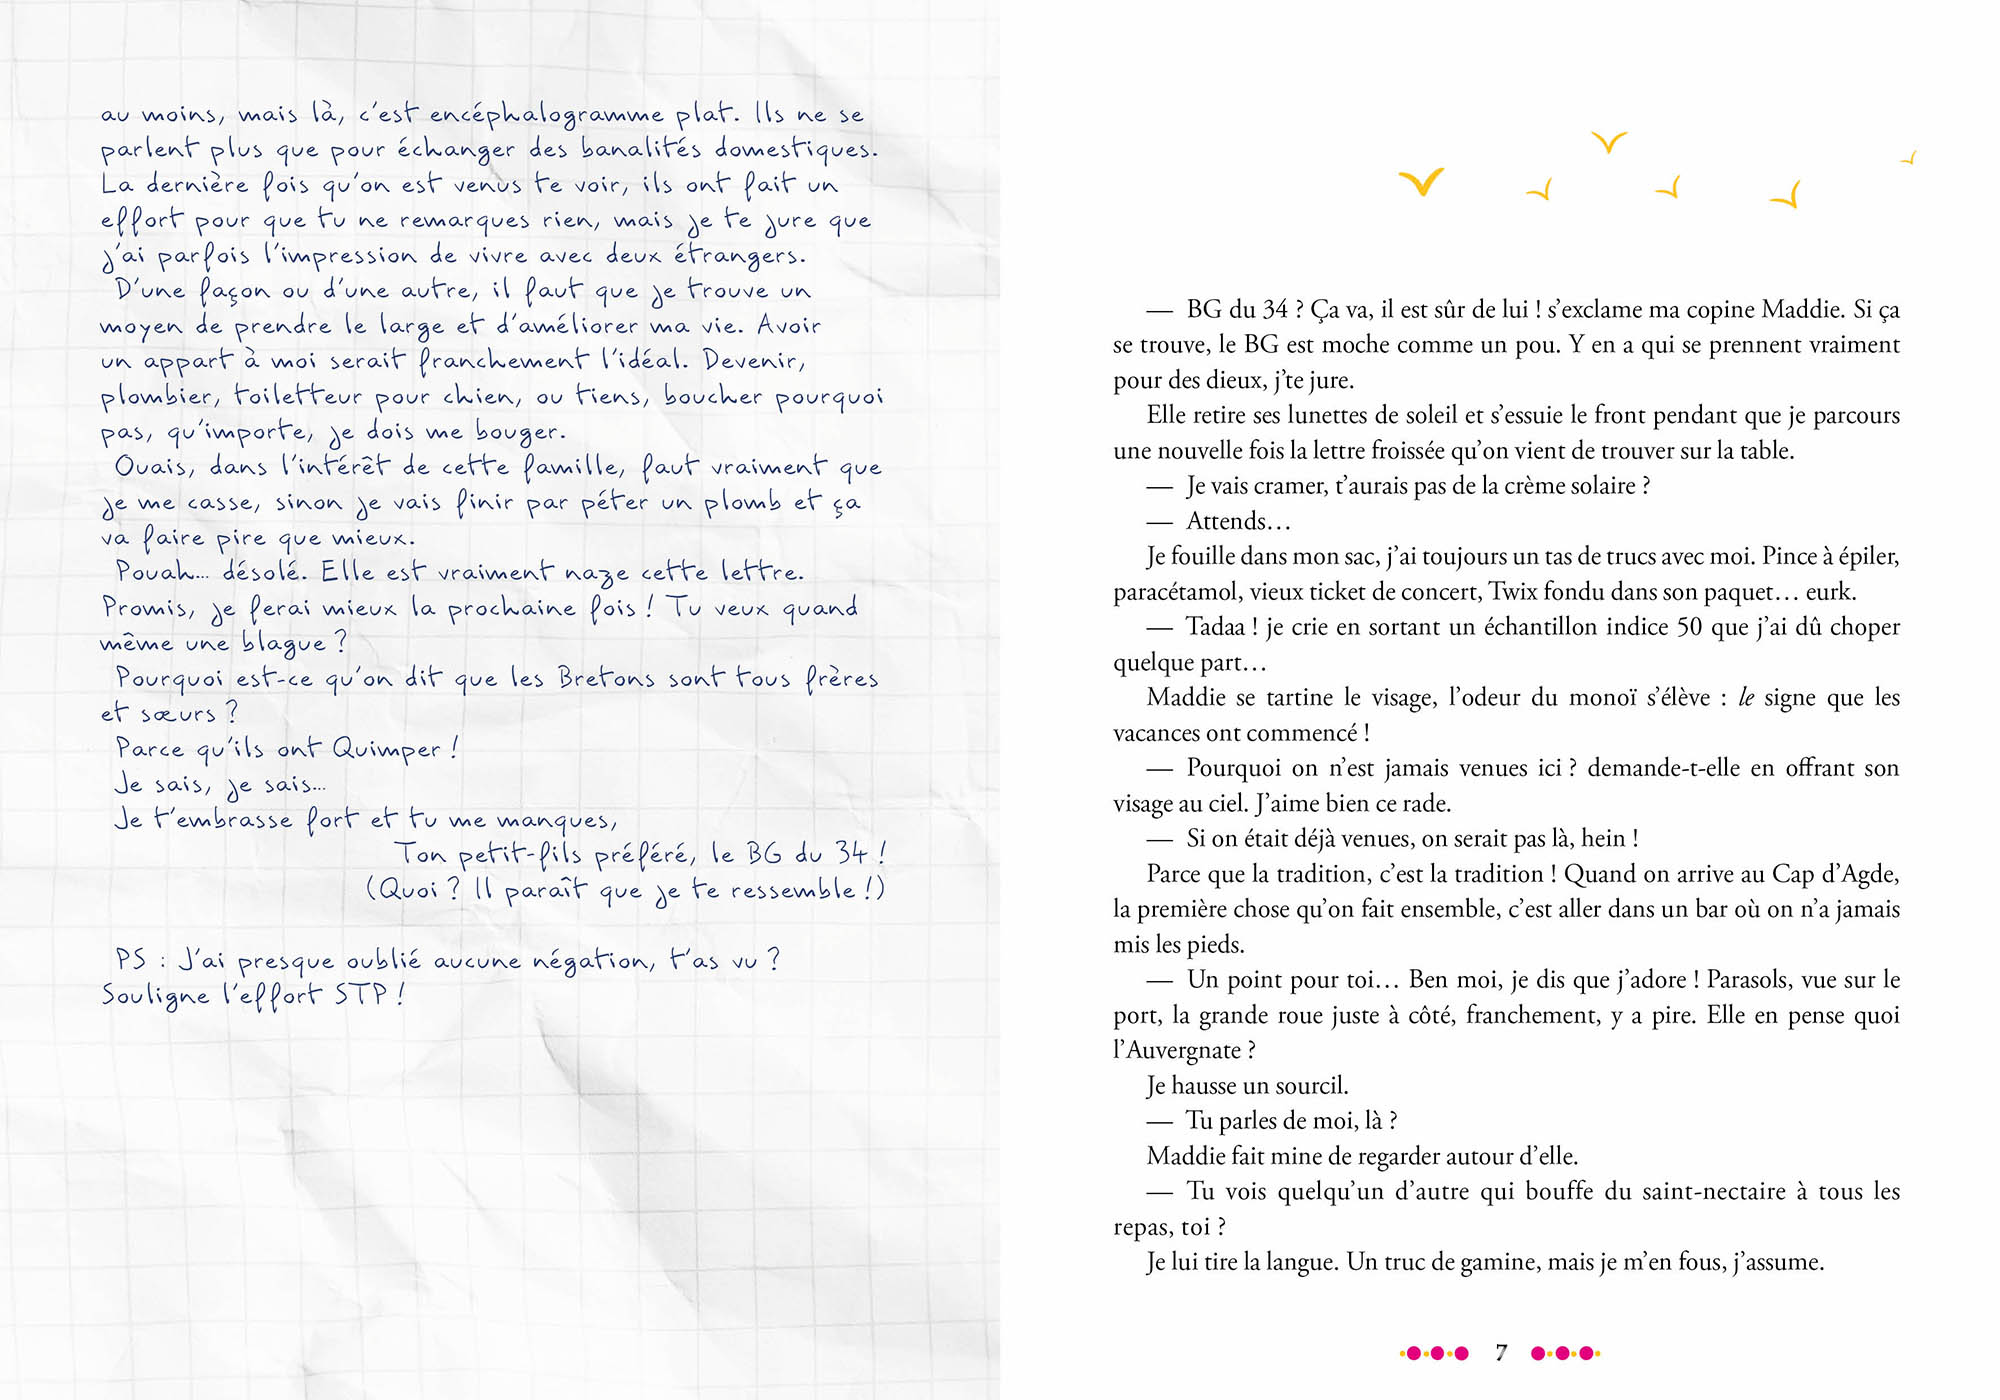 au moins, mais là, c'est encéphalogramme plat. Ils ne se
parlent plus que pour échanger des banalités domestiques.
La dernière fois qu'on est venus te voir, ils ont fait un
effort pour que tu ne remarques rien, mais je te jure que
j'ai parfois l'impression de vivre avec deux étrangers.
D'une façon ou d'une autre, il faut que je trouve un
moyen de prendre le large et d'améliorer ma vie. Avoir
un appart à moi serait franchement l'idéal. Devenir,
plombier, toiletteur pour chien, ou tiens, boucher pourquoi
pas, qu'importe, je dois me bouger.
Ouais, dans l'intérêt de cette famille, faut vraiment que
je me casse, sinon je vais finir par péter un plomb et ça
va faire pire que mieux.
Pouah... désolé. Elle est vraiment naze cette lettre.
Promis, je ferai mieux la prochaine fois ! Tu veux quand
même une blague ?
Pourquoi est-ce qu'on dit que les Bretons sont tous frères
et sœurs ?
Parce qu'ils ont Quimper !
Je sais, je sais...
Je t'embrasse fort et tu me manques,
Ton petit-fils préféré, le BG du 34 !
(Quoi ? Il paraît que je te ressemble !)
PS : J'ai presque oublié aucune négation, t'as vu ?
Souligne l'effort STP !
— BG du 34 ? Ça va, il est sûr de lui ! s'exclame ma copine Maddie. Si ça
se trouve, le BG est moche comme un pou. Y en a qui se prennent vraiment
pour des dieux, j'te jure.
Elle retire ses lunettes de soleil et s'essuie le front pendant que je parcours
une nouvelle fois la lettre froissée qu'on vient de trouver sur la table.
— Je vais cramer, t'aurais pas de la crème solaire ?
— Attends…
Je fouille dans mon sac, j'ai toujours un tas de trucs avec moi. Pince à épiler,
paracétamol, vieux ticket de concert, Twix fondu dans son paquet… eurk.
— Tadaa ! je crie en sortant un échantillon indice 50 que j'ai dû choper
quelque part…
Maddie se tartine le visage, l'odeur du monoï s'élève : le signe que les
vacances ont commencé !
— Pourquoi on n'est jamais venues ici ? demande-t-elle en offrant son
visage au ciel. J'aime bien ce rade.
— Si on était déjà venues, on serait pas là, hein !
Parce que la tradition, c'est la tradition ! Quand on arrive au Cap d'Agde,
la première chose qu'on fait ensemble, c'est aller dans un bar où on n'a jamais
mis les pieds.
— Un point pour toi… Ben moi, je dis que j'adore ! Parasols, vue sur le
port, la grande roue juste à côté, franchement, y a pire. Elle en pense quoi
l'Auvergnate ?
Je hausse un sourcil.
— Tu parles de moi, là ?
Maddie fait mine de regarder autour d'elle.
— Tu vois quelqu'un d'autre qui bouffe du saint-nectaire à tous les
repas, toi ?
Je lui tire la langue. Un truc de gamine, mais je m'en fous, j'assume.
7